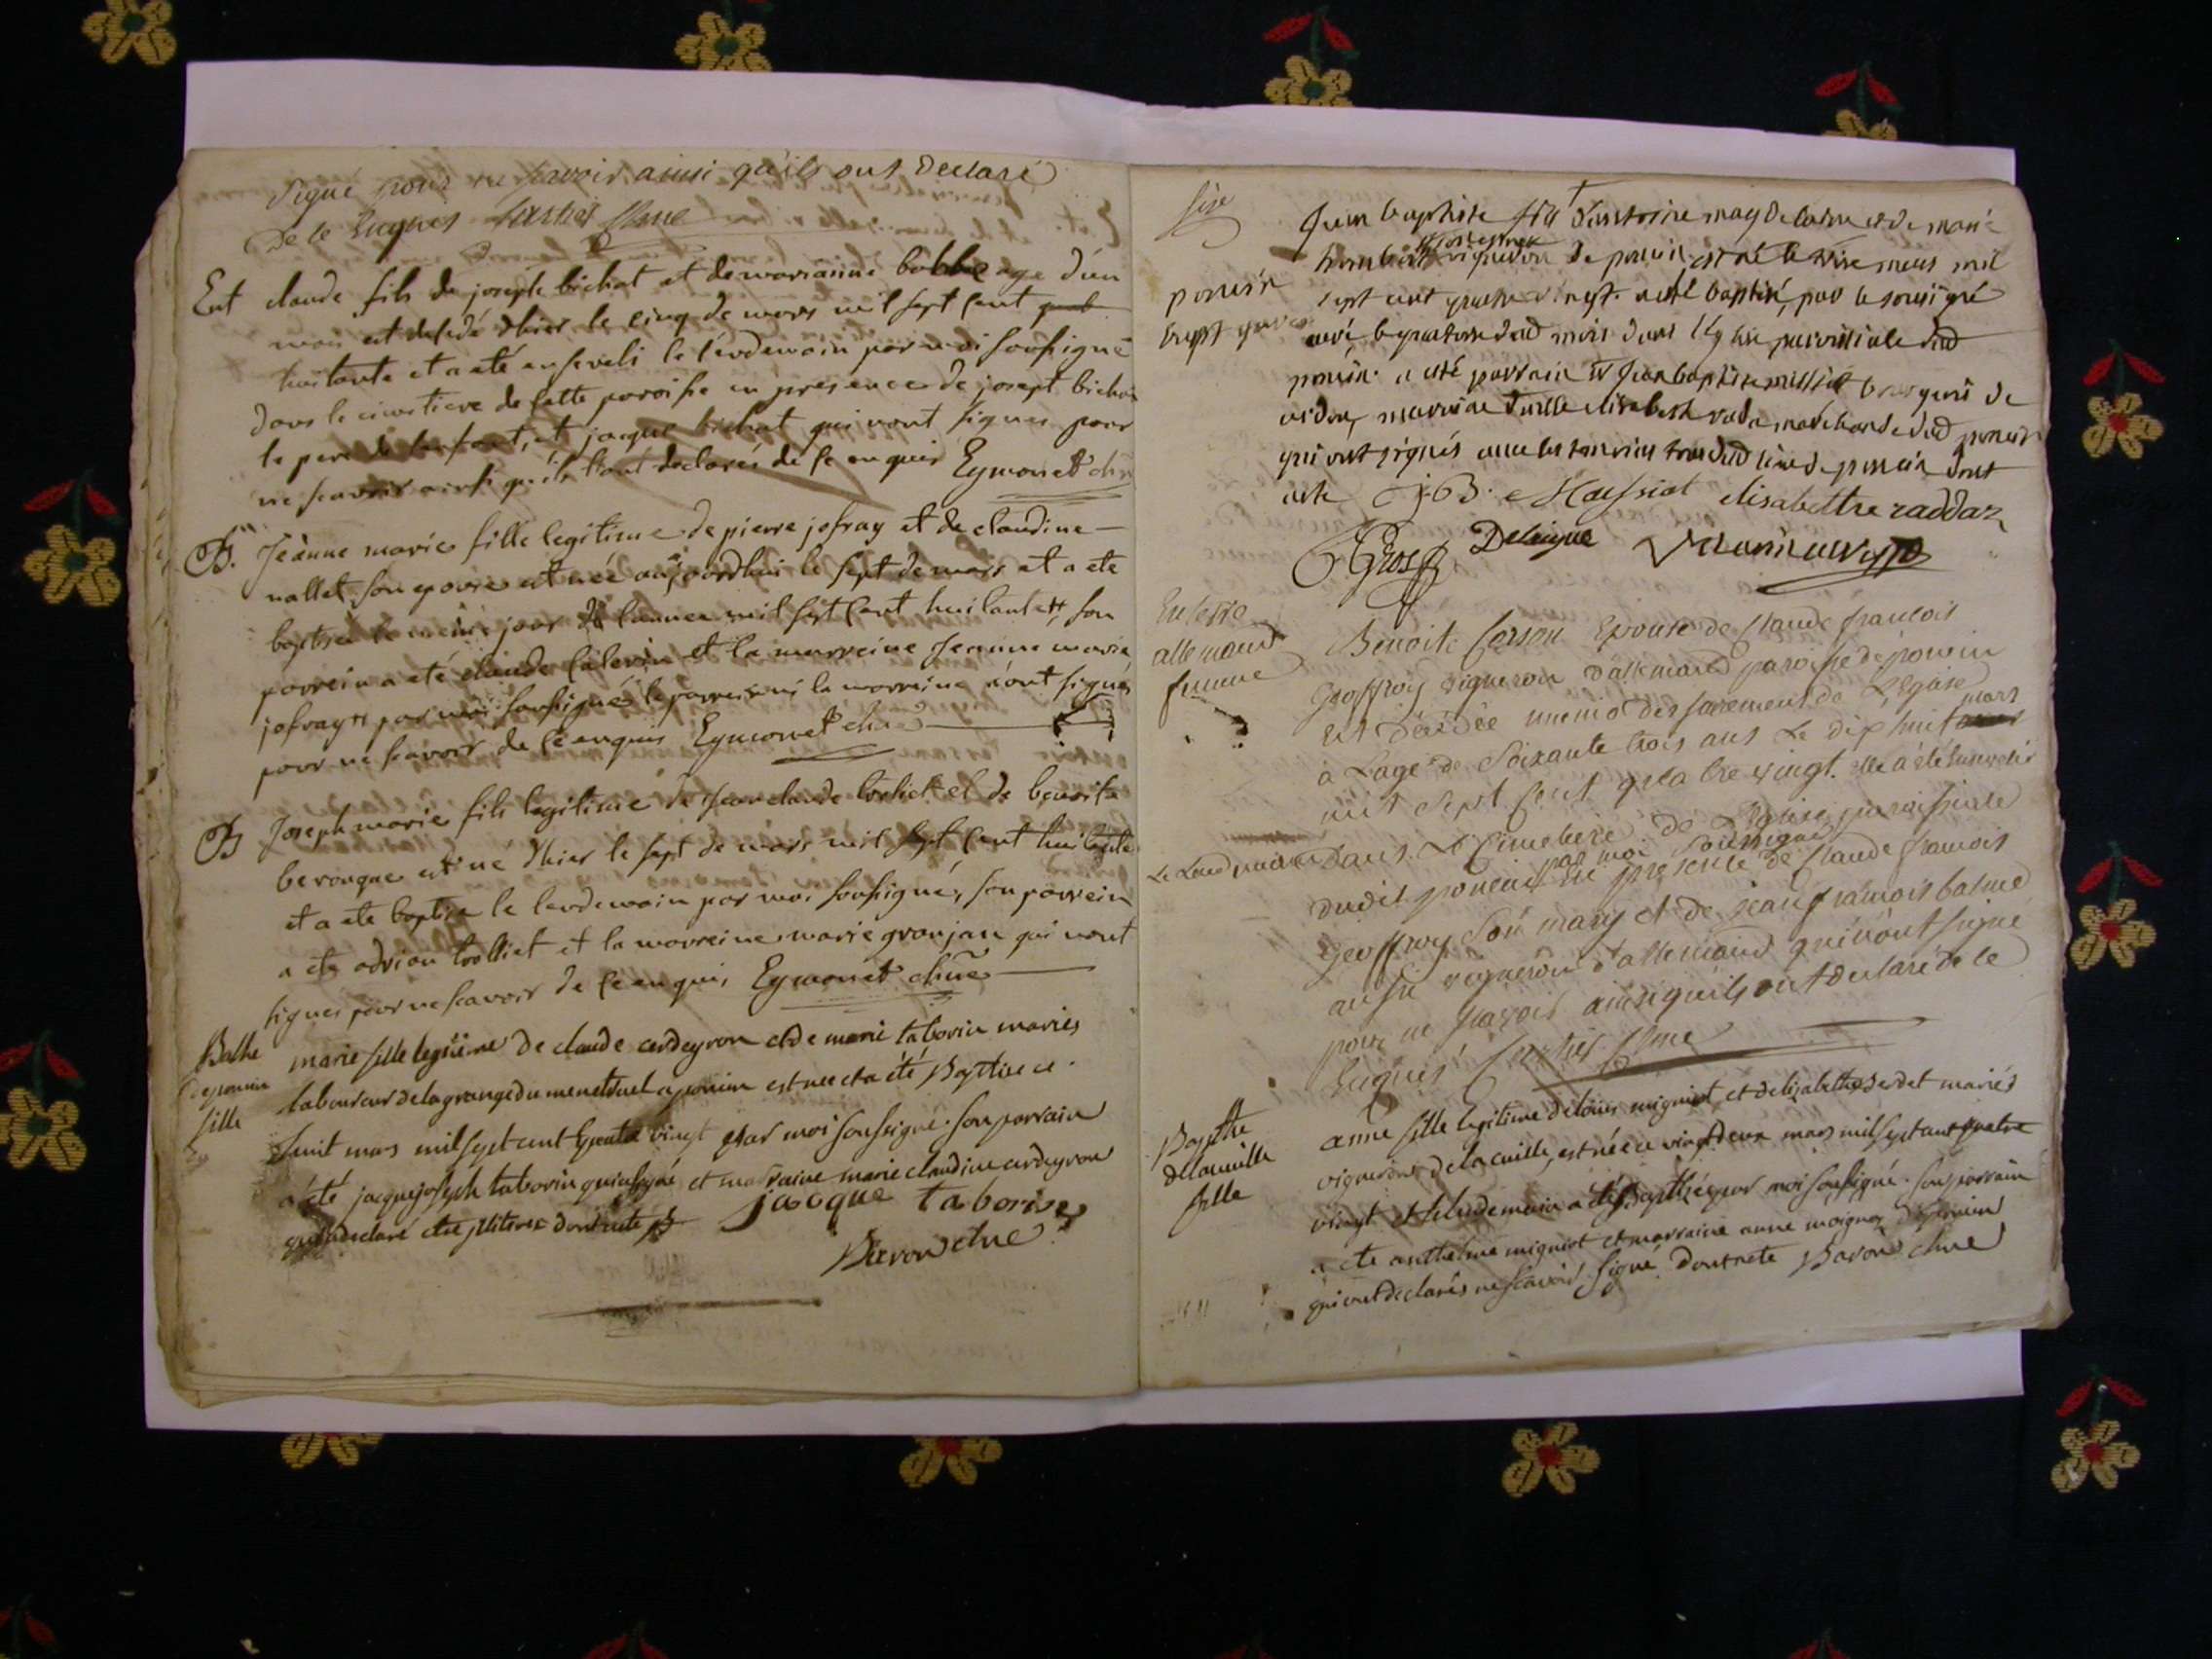 signé pour ne scavoir ainsi qu'ils ont declaré
de ce Enquis Cartier Chne
Ent claude fils de joseph bichat et de marianne bobbe age d'un
mois est decedé d'hier le cinq de mars mil sept cent
huitante et a eté enseveli le lendemain par moi soussigné
dans le cimetiere de cette paroisse en presence de joseph bichat
le pere de l'enfant, et jacque bichat qui n'ont signes pour
ne scavoir ainsi qu'ils l'ont declarés de ce enquis Eymonet chne
B. Jeanne marie fille legitime de pierre jofray et de claudine
nallet son epouse est née aujourdhui le sept de mars et a ete
baptisee le meme jour de l'annee mil sept cent huitante, son
parrein a eté claude et la marreine jeanne marie
jofray par moi soussigné le parrein ni la marreine n'ont signés
pour ne scavoir de ce enquis Eymonet chne
B Joseph marie fils legitime de jean claude trolliet et de benoite
berouque est né d'hier le sept de mars mil sept cent huitante
et a ete baptise le lendemain par moi soussigné, son parrein
a ete adrian trolliet et la marreine marie granjan qui n'ont
signes pour ne scavoir de ce enquis, Eymonet chne
Bathe
de poncin
fille
marie fille legitime de claude cerdeyron et de marie taborin mariés
laboureur de la grange du menetruel a poncin est nee et a été Baptisee ce
huit mars mil sept cent quatre vingt par moi soussigné. son parrain
a été jacque joseph taborin qui a signé et marraine marie claudine cerdeyron
qui a declaré etre illiteree dont acte jacque taborin
Baron chne
poncin
Jean baptiste fils d'antoine may de et de marie
humbert vigneron de poncin est né le treize mars mil
sept cent quatre vingt. a eté baptisé, par le sousigné
curé le quatorse dud mois dans l'églisse parroissiale dud
poncin. a eté parrain sr jean baptiste bourgeois de
marraine dlle elisabeth radda marchande dud poncin
qui ont signés avec les temoins tous dud lieu de poncin dont
acte J. B. Massiat elisabethe raddaz
Gros Deleigue
Enterre
allemand
femme
Benoite Cerson Epouse de Claude francois
Geoffroy vigneron d'allemand paroisse de poncin
est décédée munie des sacremens de L'Eglise
à L'age de soixante trois ans Le dix huit mars
mil sept cent quatre vingt. elle a été Ensevelie
Le Lendemain dans Le Cimetiere de L'Eglise paroissiale
dudit poncin par moi soussigné en presence de Claude francois
Geoffroy son mary et de jean francois balme
aussi vigneron d'allemand qui n'ont signé
pour ne scavoir ainsi qu'ils ont declaré de ce
Enquis Cartier Chne
Bapthe
de la cuille
fille
anne fille legitime de loüis migniot et delisabeth derdet mariés
vignerons de la cuille, est née ce vingt deux mars mil sept cent quatre
vingt et le lendemain a été Baptisée par moi soussigné. son parrain
a ete anthelme migniot et marraine anne moigno de poncin
qui ont declarés ne scavoir signé. dont acte Baron chne